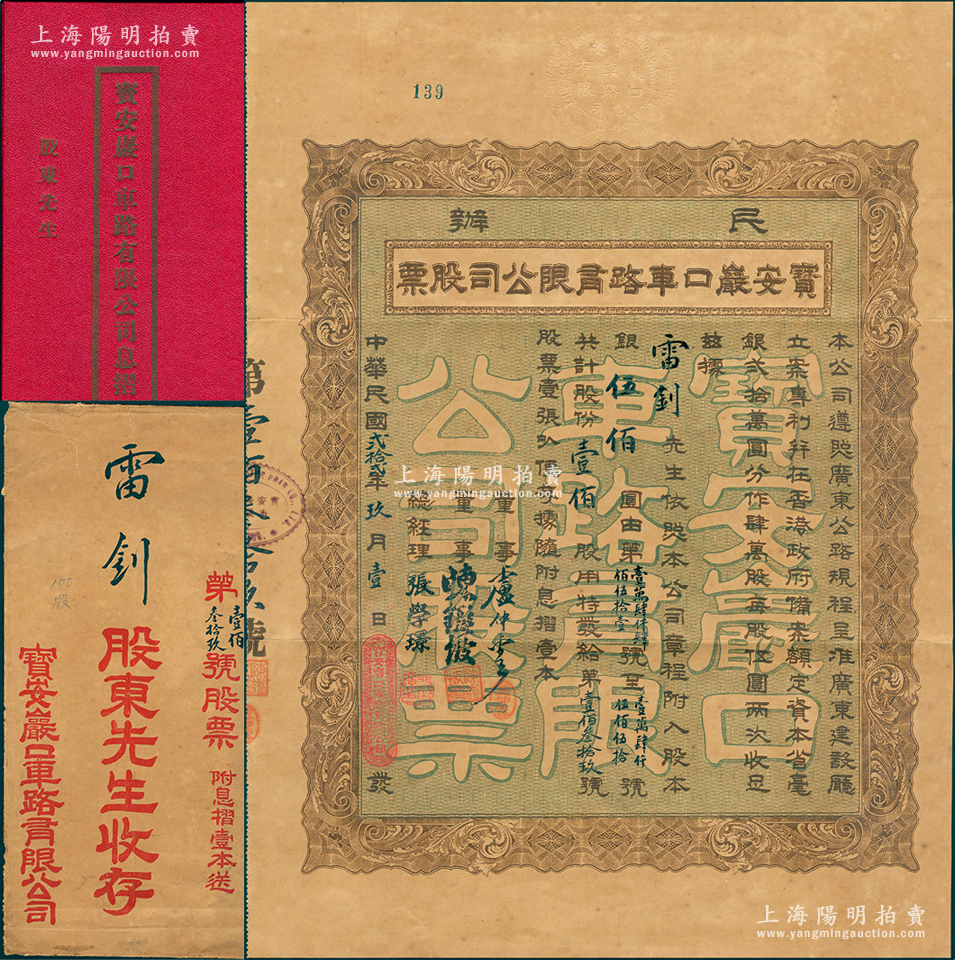 上海陽明拍賣
www.yangmingauction.com
寳安巖口車路有限公司息摺
股東先生
雷釗
第壹佰叁拾玖號股票 附息摺壹本送
股東先生收存
寳安巖口車路有限公司
100
股
139
民辦
寶安巖口車路有限公司股票
本公司遵照廣東公路規程呈准廣東建設廳
立案專利并在香港政府備案額定資本省毫
銀弍拾萬圓分作肆萬股每股伍圓兩次收足
茲據
雷釗先生依照本公司章程附入股本
銀伍佰圓由第壹萬肆仟肆佰伍拾壹號至壹萬肆仟伍佰伍拾號
共計股份壹佰股用特發給第壹佰叁拾玖號
股票壹張以作據隨附息摺壹本
董事盧仲雲
董事
總經理張學璟
中華民國弍拾弍年玖月壹日發
寶安巖口
車路有限
公司股票
第壹佰叁拾玖號
上海陽明拍賣
www.yangmingauction.com
上海陽明拍賣
www.yangmingauction.com